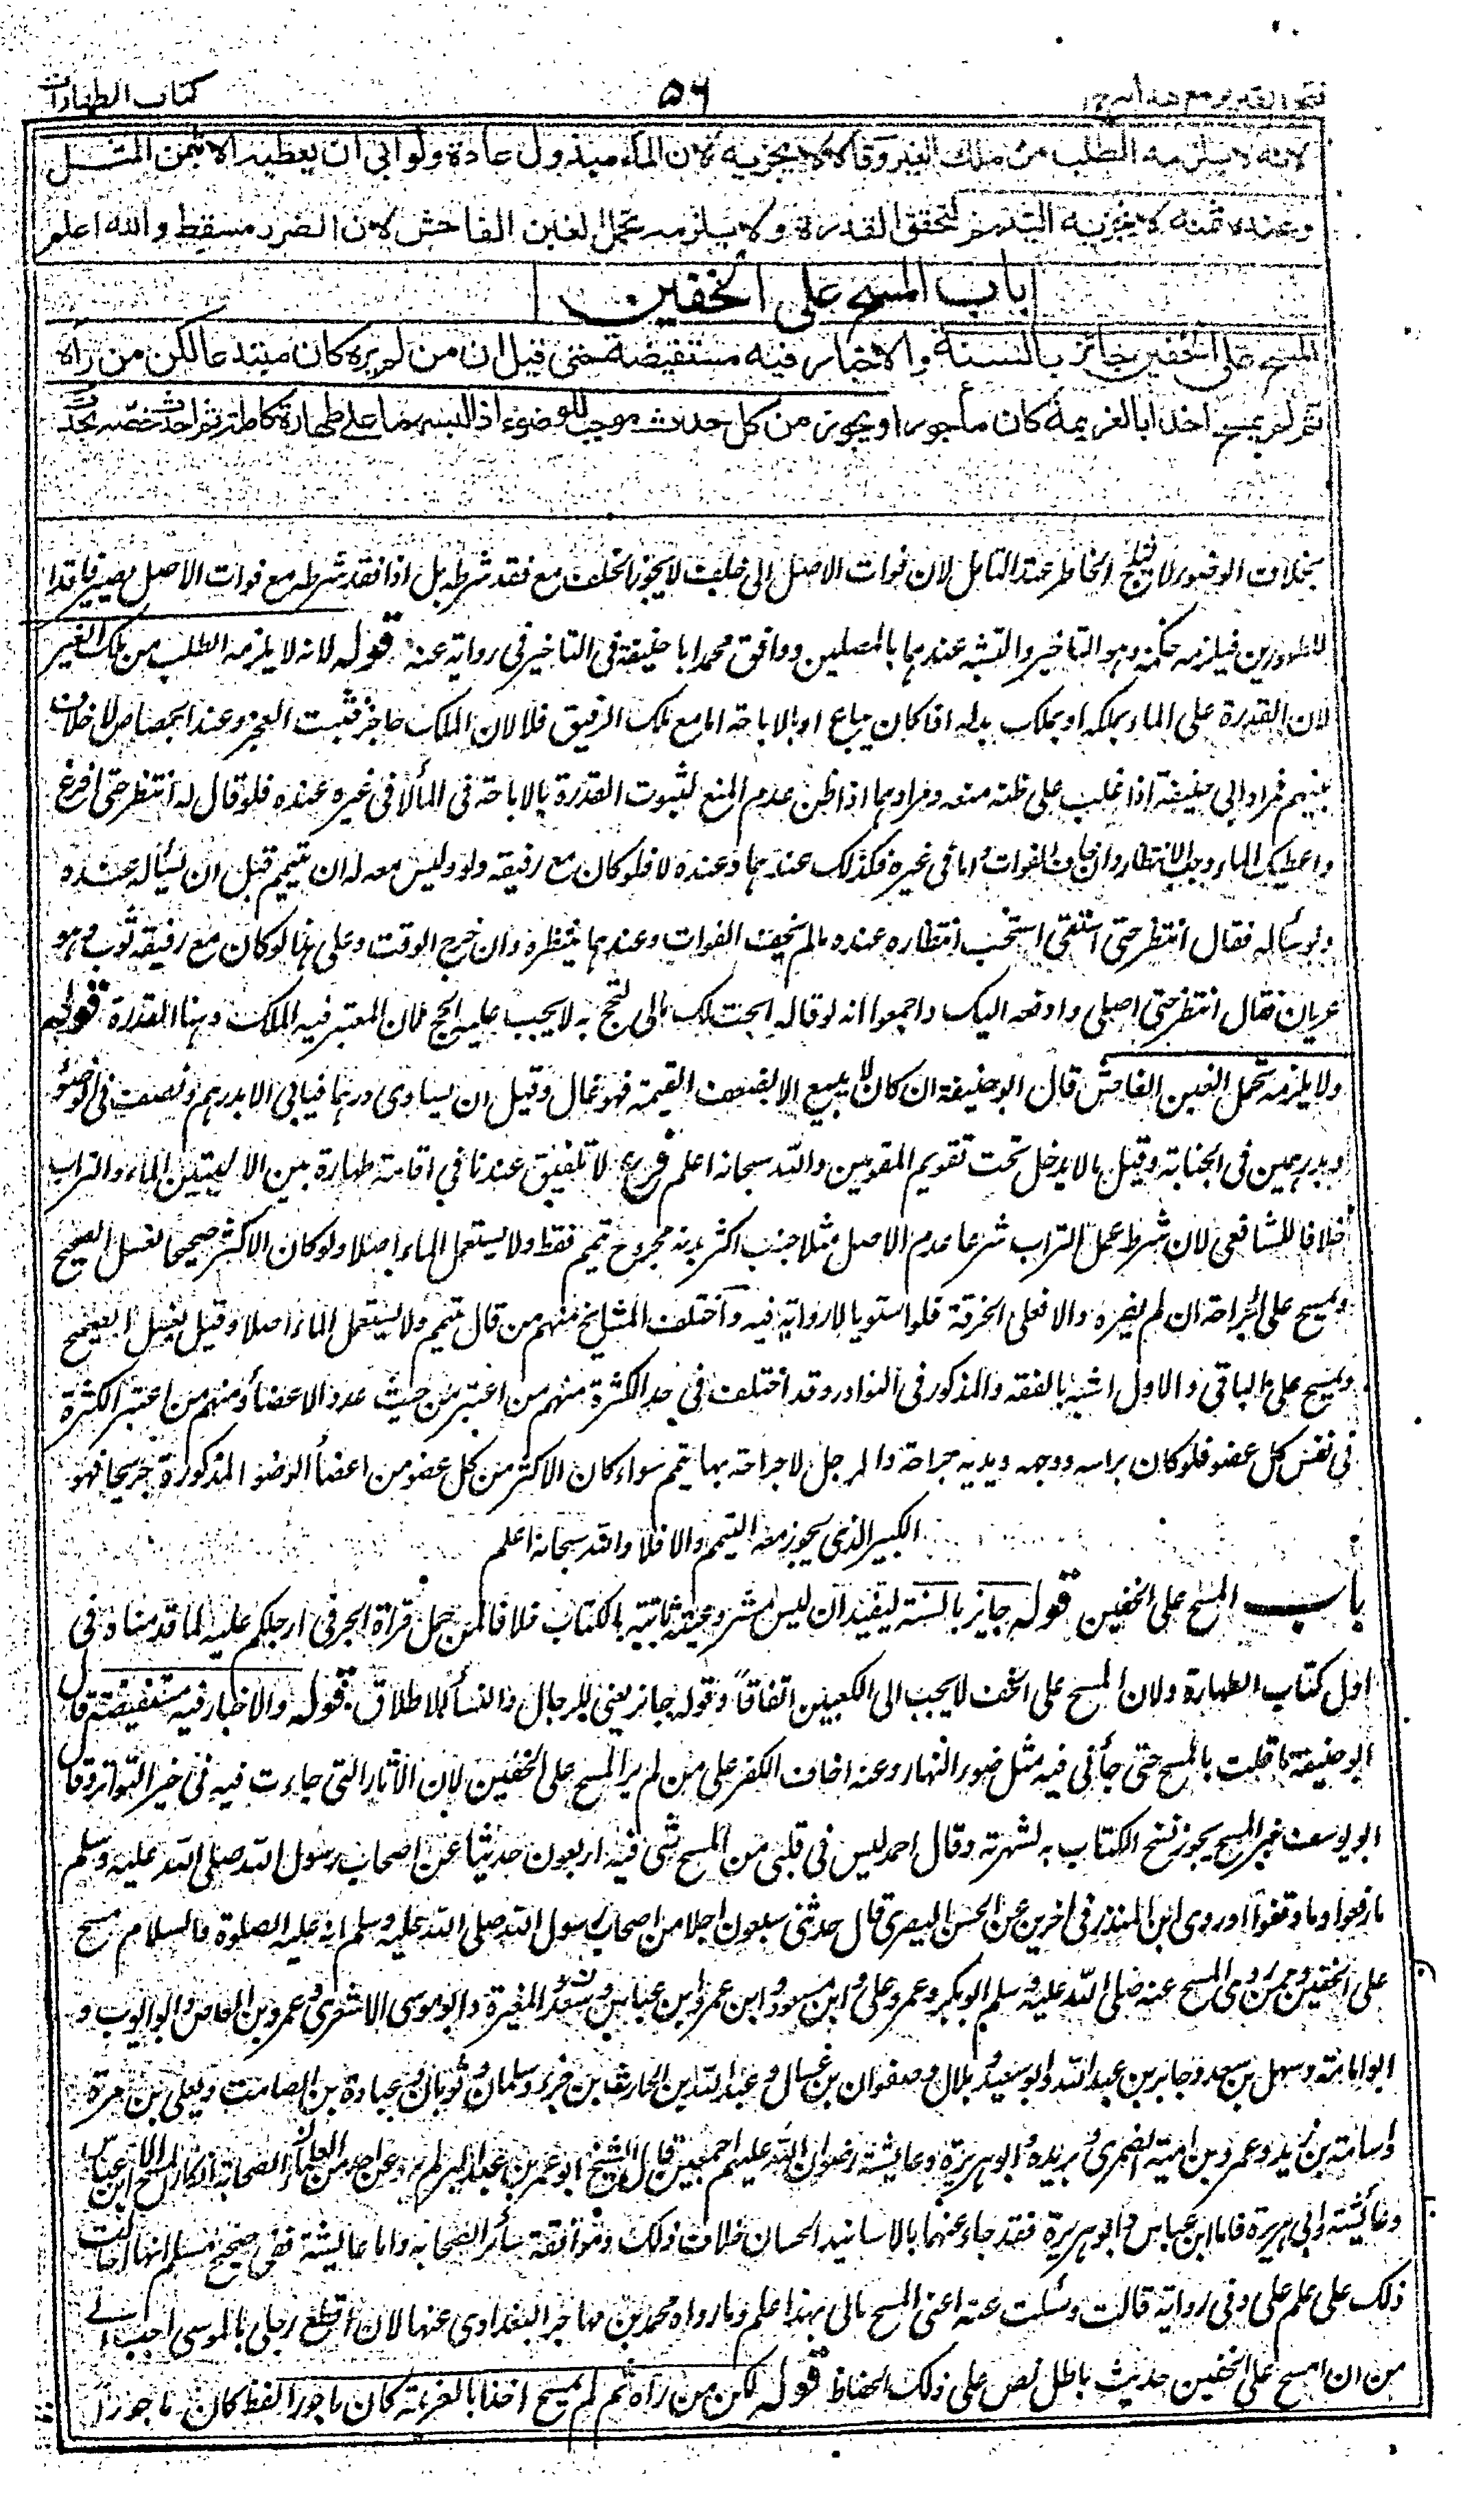 فتح القدير مع هدايه ج ١
٥٦
كتاب الطهارات
لانه لا يلزمه الطلب من ملك الغير وقالا لا يجزيه لان الماء مبذول عادة ولو ابى ان يعطيه الا بثمن المثل
وعنده ثمنه لا يجزيه التيمم لتحقق القدرة ولا يلزمه تحمل الغبن الفاحش لان الضرر مسقط والله اعلم
باب المسح على الخفين
المسح على الخفين جائز بالسنة والاخبار فيه مستفيضة حتى قيل ان من لم يره كان مبتدعا لكن من رآه
ثم لم يمسح اخذا بالعزيمة كان مأجورا ويجوز من كل حدث موجب للوضوء اذا لبسهما على طهارة كاملة ثم احدث خصه بحدث
بخلاف الوضوء لا الخاطر عند التامل لان فوات الاصل الى خلف لا يجوز الخلف مع فقد شرطه بل اذا فقد شرطه مع فوات الاصل يصير فاقدا
للطهورين فيلزمه حكمه وهو التاخير والتشبه عندهما بالمصلين ووافق محمد ابا حنيفة فى التاخير فى رواية عنه قوله لانه لا يلزمه الطلب من ملك الغير
لان القدرة على الماء بملكه او بملك بدله اذا كان يباع او بالاباحة اما مع ملك الرفيق فلا لان الملك حاجز فثبت العجز وعند الجصاص لا خلاف
بينهم فمراد ابى حنيفة اذا غلب على ظنه منعه ومرادهما اذا ظن عدم المنع لثبوت القدرة بالاباحة فى الماء لا فى غيره عنده فلو قال له انتظر حتى افرغ
واعطيك الماء وجب الانتظار وان خاف الفوات واما فى غيره فكذلك عندهما وعنده لا فلو كان مع رفيقه دلو وليس معه له ان يتيمم قبل ان يسأله عنده
ولو سأله فقال انتظر حتى استقى استحب انتظاره عنده ما لم يخف الفوات وعندهما ينتظره وان خرج الوقت وعلى هذا لو كان مع رفيقه ثوب وهو
عريان فقال انتظر حتى اصلى وادفعه اليك واجمعوا انه لو قال له ابحت لك مالى لتحج به لا يجب عليه الحج لان المعتبر فيه الملك وهنا القدرة قوله
ولا يلزمه تحمل الغبن الفاحش قال ابو حنيفة ان كان لا يبيع الا بضعف القيمة فهو غال وقيل ان يساوى درهما فيأبى الا بدرهم ونصف فى الوضوء
وبدرهمين فى الجنابة وقيل ما لا يدخل تحت تقويم المقومين والله سبحانه اعلم فرع لا تلفيق عندنا في اقامة طهارة بين الآليتين الماء والتراب
خلافا للشافعى لان شرط عمل التراب شرعا عدم الاصل مثلا جنب اكثر بدنه مجروح تيمم فقط ولا يستعمل الماء اصلا ولو كان الاكثر صحيحا لغسل الصحيح
ويمسح على الجراحة ان لم يضره والا فعلى الخرقة فلو استويا لا رواية فيه واختلف المشايخ منهم من قال يتيمم ولا يستعمل الماء اصلا وقيل يغسل الصحيح
ويمسح على الباقى والاول اشبه بالفقه والمذكور فى النوادر وقد اختلف فى حد الكثرة منهم من اعتبر من حيث عدد الاعضاء ومنهم من اعتبر الكثرة
فى نفس كل عضو فلو كان براسه ووجهه ويديه جراحة والرجل لا جراحة بها يتيمم سواء كان الاكثر من كل عضو من اعضاء الوضوء المذكورة جريحا فهو
الكبير الذى يجوز معه التيمم والا فلا والله سبحانه اعلم
باب المسح على الخفين قوله جايز بالسنة ليفيد ان ليس مشروعيته ثابتة بالكتاب خلافا لمن حمل قراءة الجر فى ارجلكم عليه لما قدمناه فى
اول كتاب الطهارة ولان المسح على الخف لا يجب الى الكعبين اتفاقاً وقوله جائز يعنى للرجال والنسأ للاطلاق قوله والاخبار فيه مستفيضة قال
ابو حنيفة ما قلت بالمسح حتى جأنى فيه مثل ضوء النهار وعنه اخاف الكفر على من لم ير المسح على الخفين لان الاثار التى جاءت فيه فى خبر التواتر وقال
ابو يوسف خبر المسح يجوز نسخ الكتاب به لشهرته وقال احمد ليس فى قلبى من المسح شى فيه اربعون حديثا عن اصحاب رسول الله صلى الله عليه وسلم
ما رفعوا وما وقفوا وروى ابن المنذر فى اخرين عن الحسن البصرى قال حدثنى سبعون رجلا من اصحاب رسول الله صلى الله عليه وسلم انه عليه الصلوة والسلام مسح
على الخفين وممن روى المسح عنه صلى الله عليه وسلم ابو بكر وعمر وعلى وابن مسعود وابن عمر وابن عباس وسعد والمغيرة وابو موسى الاشعرى وعمرو بن العاص وابو ايوب و
ابو امامة وسهل بن سعد وجابر بن عبد الله وابو سعيد وبلال وصفوان بن عسال وعبد الله بن الحارث بن جزء وسلمان وثوبان وعبادة بن الصامت ويعلى بن مرة
واسامة بن زيد وعمرو بن امية الضمرى وبريدة وابو هريرة وعائشة رضوان الله عليهم اجمعين قال الشيخ ابو عمر بن عبد البر لم يرو عن احد من الصحابة انكار المسح الا ابن عباس
وعائشة وابى هريرة فاما ابن عباس وابو هريرة فقد جاء عنهما بالاسانيد الحسان خلاف ذلك وموافقة سائر الصحابة واما عائشة ففى صحيح مسلم انها احالت
ذلك على علم على وفى رواية قالت وسئلت عنه اعنى المسح مالى بهذا علم وما رواه محمد بن مهاجر البغدادى عنها لان اقطع رجلى بالموسى احب الى
من ان امسح على الخفين حديث باطل نص على ذلك الحفاظ قوله لكن من راه ثم لم يمسح اخذا بالعزيمة كان ماجورا لفظ كان ماجورا